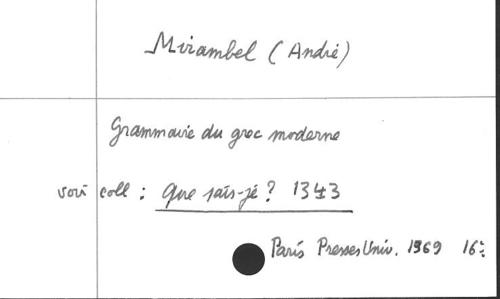 Mirambel (André)
Grammaire du grec moderne
voir coll : Que sais-je? 1343
Paris Presses Univ. 1969 16: